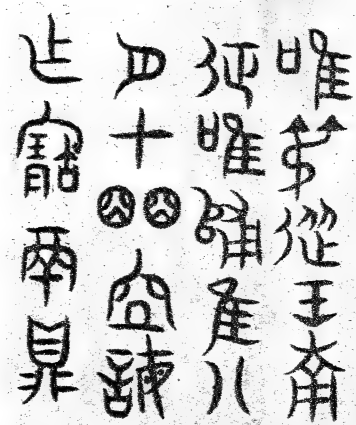 唯叔從王南
征唯歸隹八
月才皕
乍寶鬲鼎